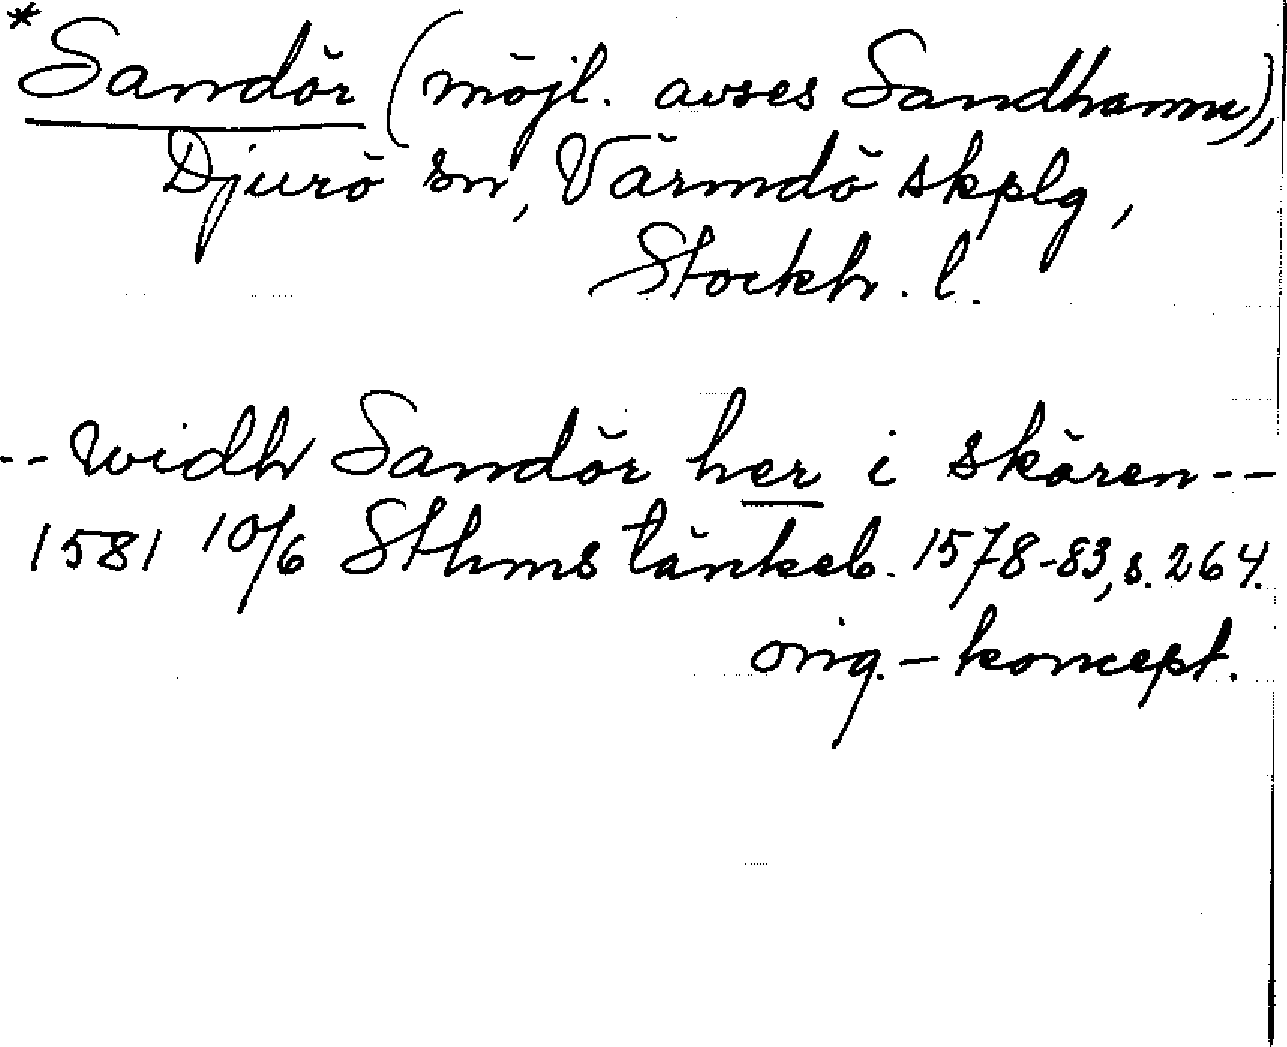 *Sandör (möjl. avses Sandhamn),
Djurö sn, Värmdö skplg,
Stockh. l.
-- widh Sandör her i skären --
1581 10/6 Sthms tänkeb. 1578-83, s. 264.
orig.-koncept.